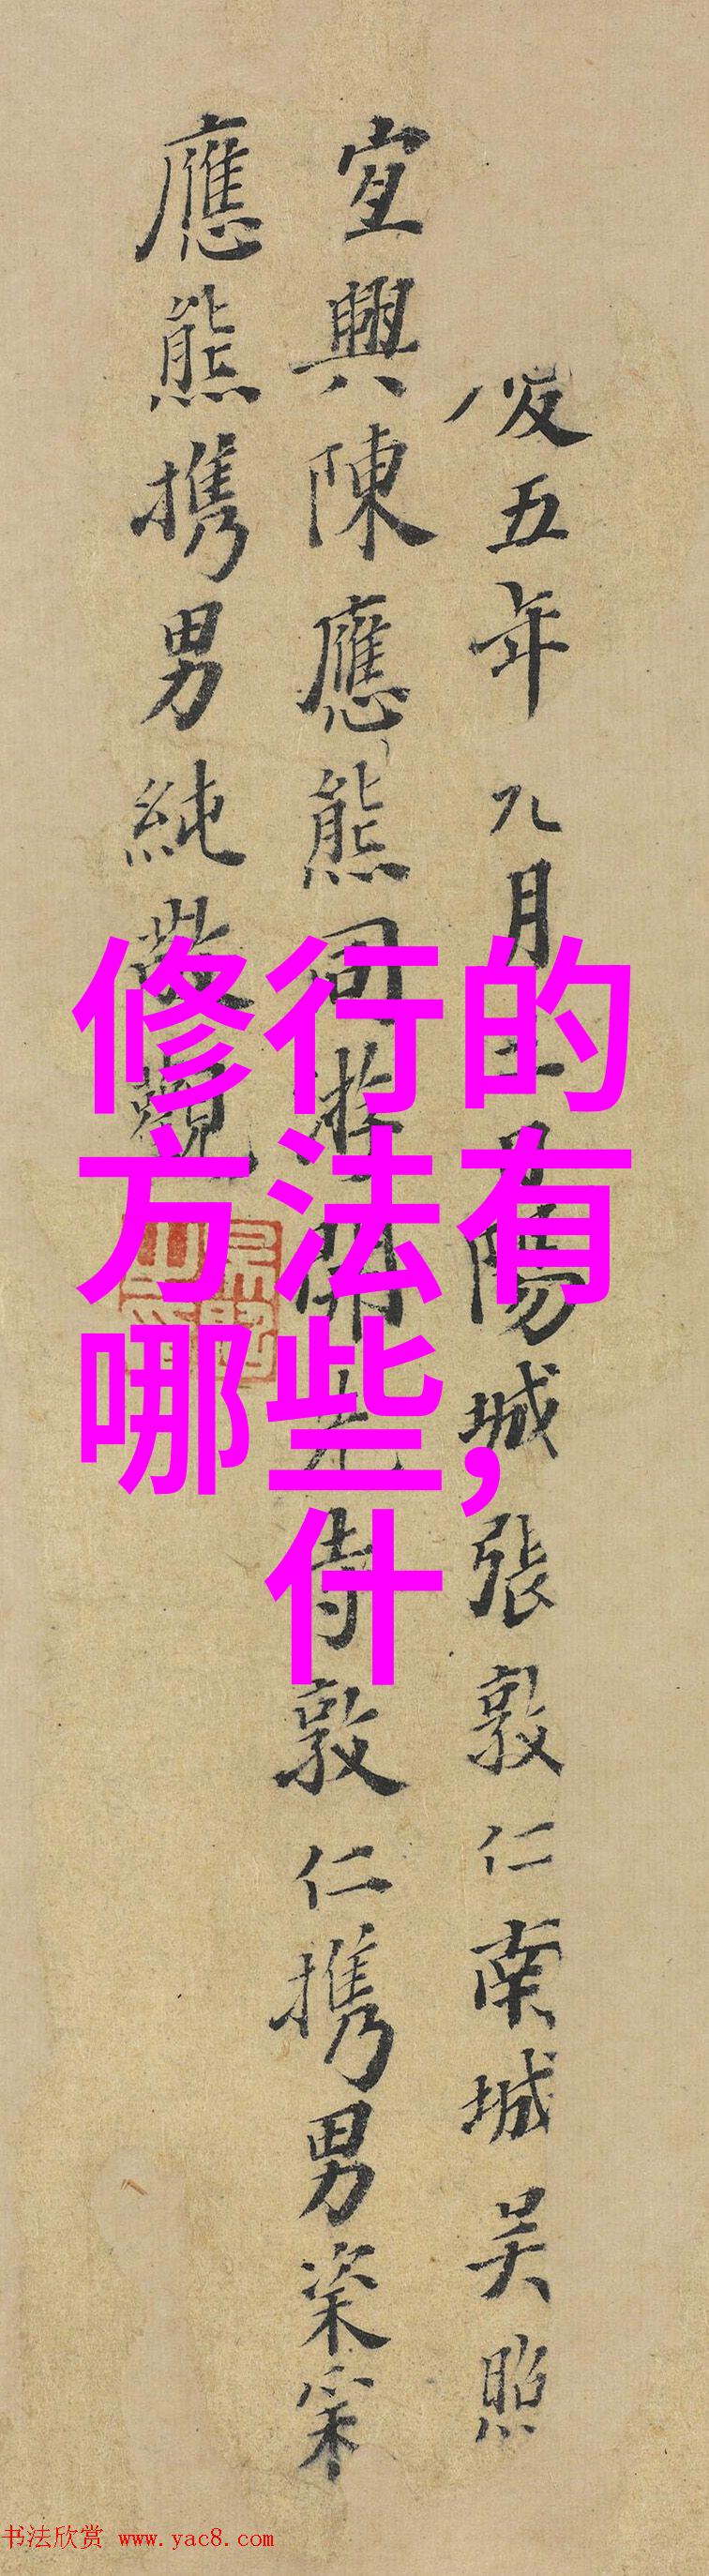 五年九月
陽城張敦仁南城吳照
宜興陳應熊同游開元寺敦仁携男
應熊携男純敬觀
修行的
方法有
哪些,
什
书法欣赏 www.yac8.com